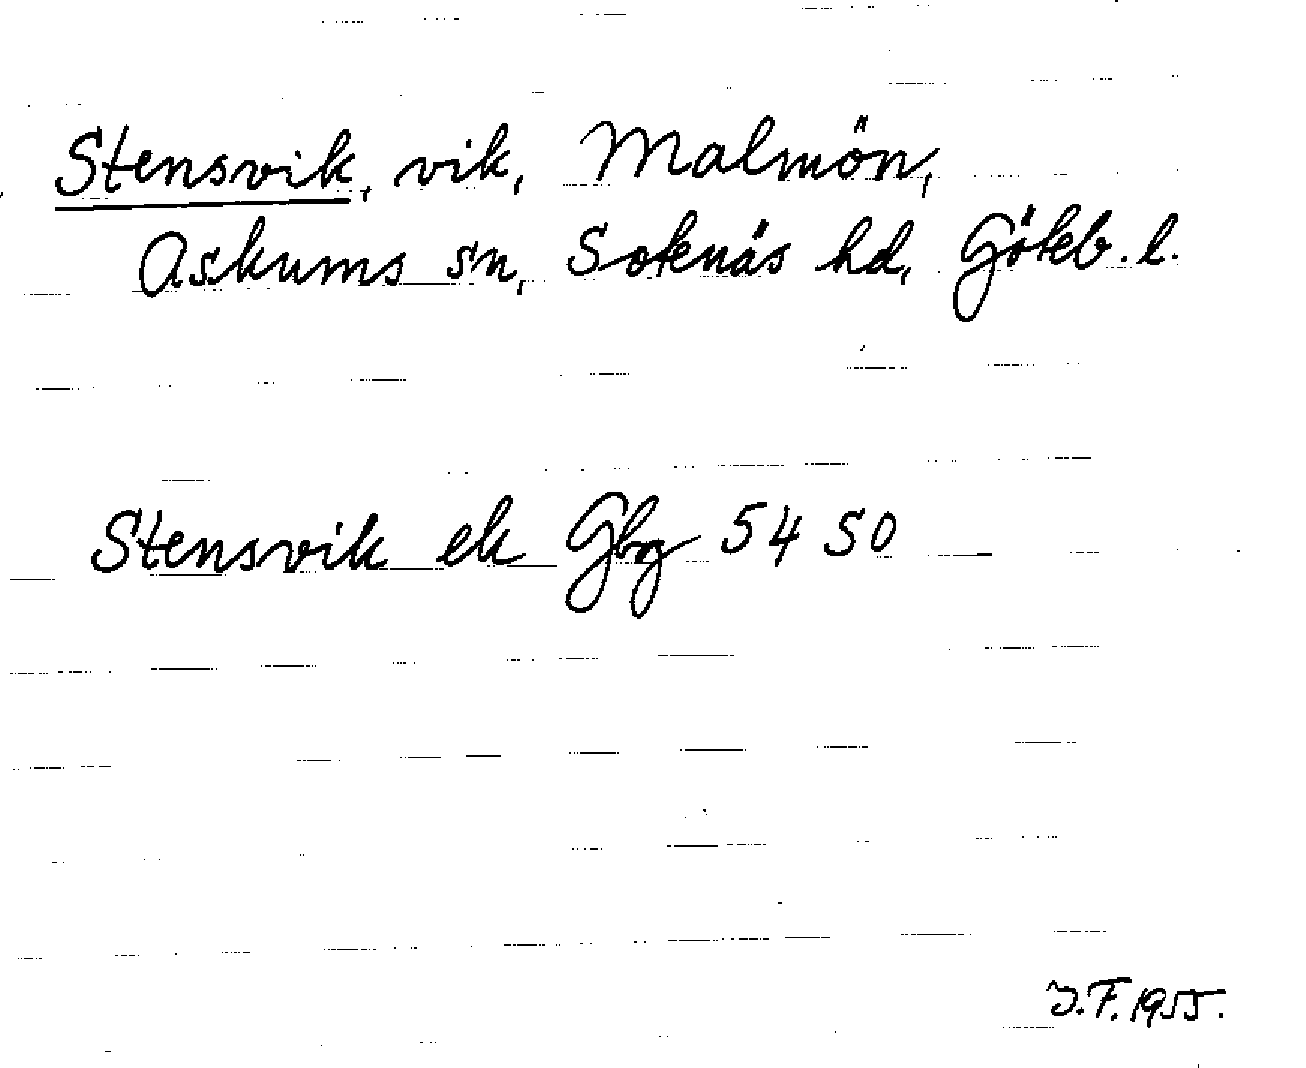 Stensvik, vik, Malmön,
Askums sn, Sotenäs hd, Göteb. l.
Stensvik ek Gbg 54 SO
J.F. 1955.